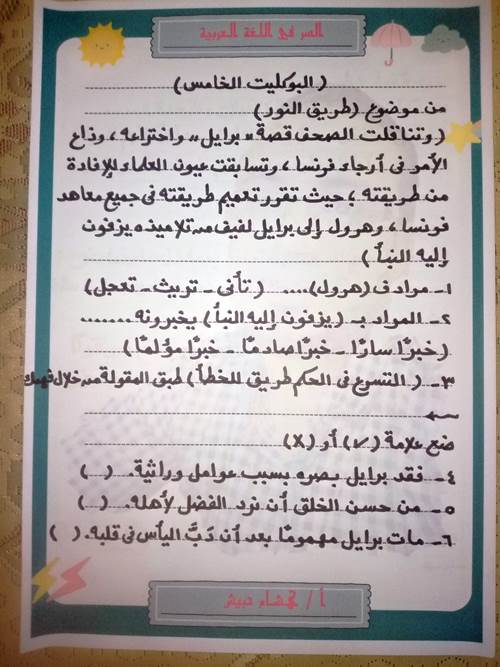 السر في اللغة العربية
( البوكليت الخامس )
من موضوع (طريق النور)
( وتناقلت الصحف قصة " برايل " واختراعه ، وذاع
الأمر فى أرجاء فرنسا ، وتسابقت عيون العلماء للإفادة
من طريقته ؛ حيث تقرر تعميم طريقته فى جميع معاهد
فرنسا ، وهرول إلى برايل لفيف من تلاميذه يزفون
إليه النبأ )
١- مرادف (هرول) .... ( تأنى - تريث - تعجل )
٢- المراد بـ ( يزفون إليه النبأ ) يخبرونه ........
( خبرًا سارًا - خبرًا صادمًا - خبرًا مؤلمًا )
٣- ( التسرع فى الحكم طريق للخطأ ) طبق المقولة من خلال فهمك
ضع علامة (✓) أو (X)
٤- فقد برايل بصره بسبب عوامل وراثية. ( )
٥- من حسن الخلق أن نرد الفضل لأهله. ( )
٦- مات برايل مهمومًا بعد أن دَبَّ اليأس فى قلبه. ( )
أ / هشام حبيش